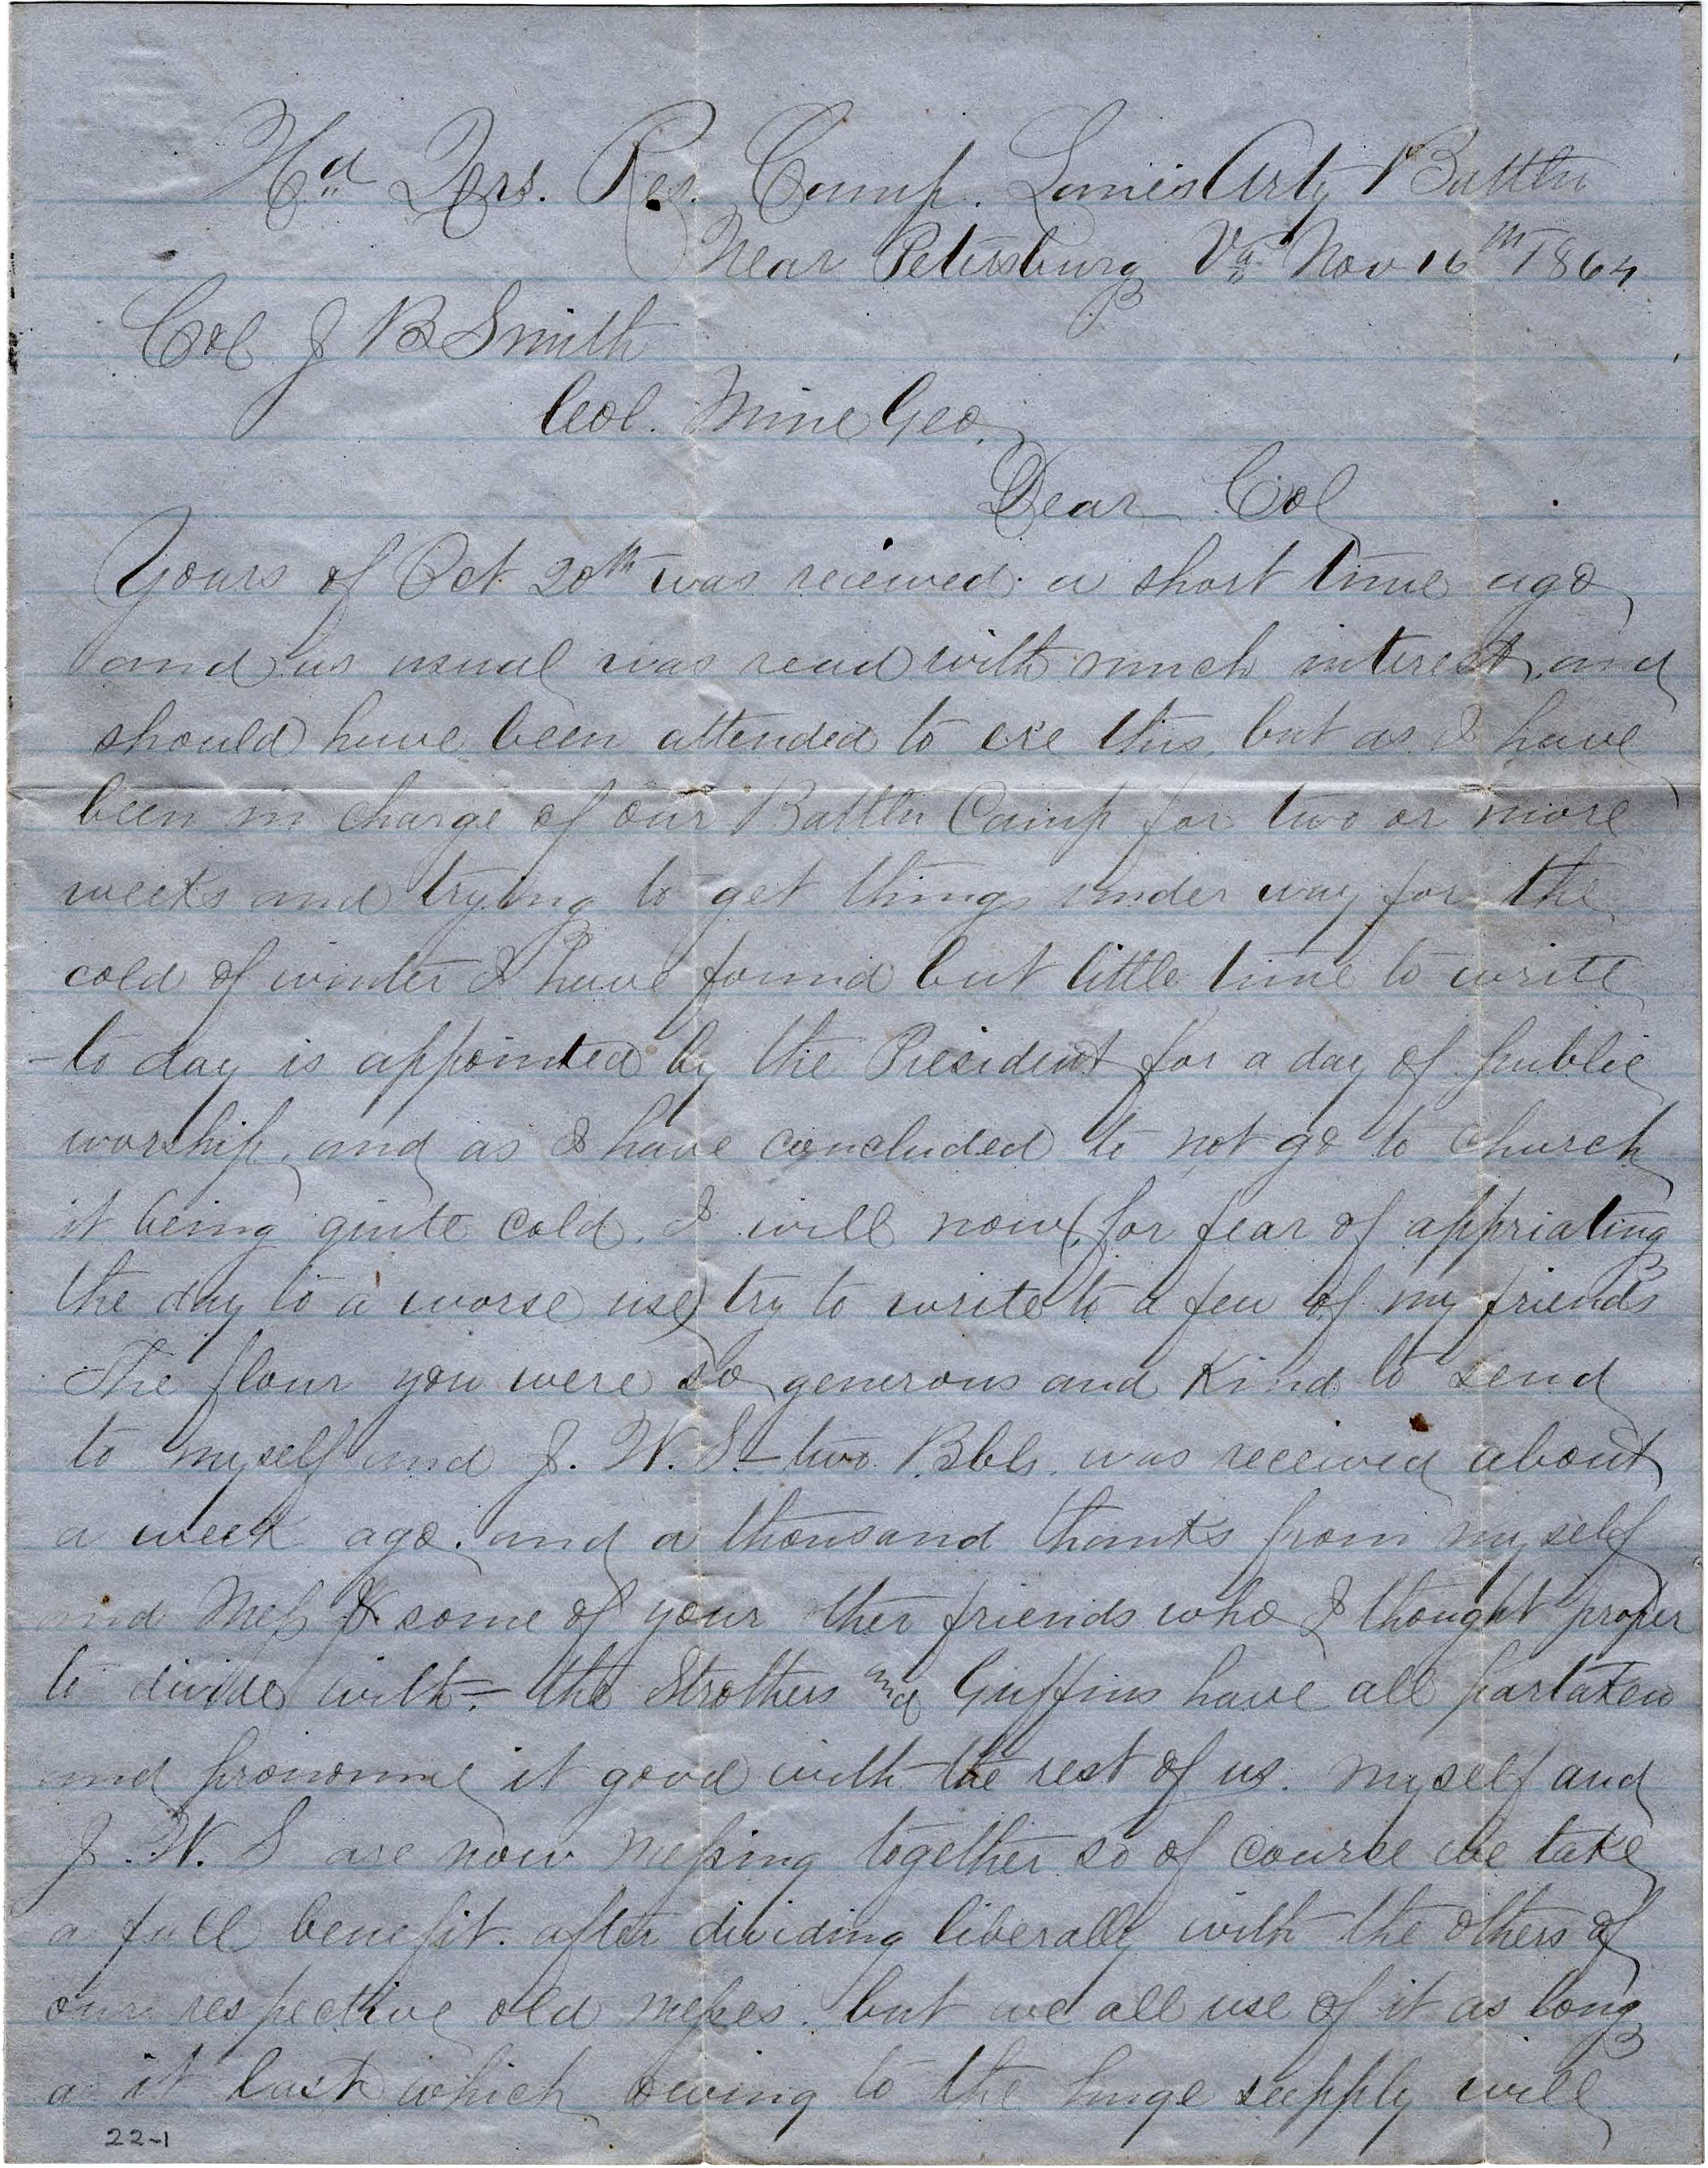 Hd Qrs. Res. Camp. Lanes Arty Battln
Near Petersburg Va Nov 16th 1864
Col J B Smith
Col. Mine Geo.
Dear Col
Yours of Oct 20th was reieved a short time ago
and as usual was read with much interest, and
should have been attended to ere this, but as I have
been in charge of our Battln Camp for two or more
weeks and trying to get things under way for the
cold of winter I have found but little time to write
to day is appointed by the President for a day of public
worship, and as I have concluded to not go to church
it being quite cold, I will now (for fear of appriating
the day to a worse use) try to write to a few of my friends
The flour you were so generous and Kind to send
to myself and J. W. S. - two Bbls. was received about
a week ago. and a thousand thanks from my self
and Mess & some of your other friends who I thought proper
to divide with - the Strothers and Griffins have all partaken
and pronounce it good with the rest of us. myself and
J. W. S are now messing together so of course we take
a full benefit. after dividing liberally with the others of
our respective old messes. but we all use of it as long
a it last which owing to the huge supply will
22-1